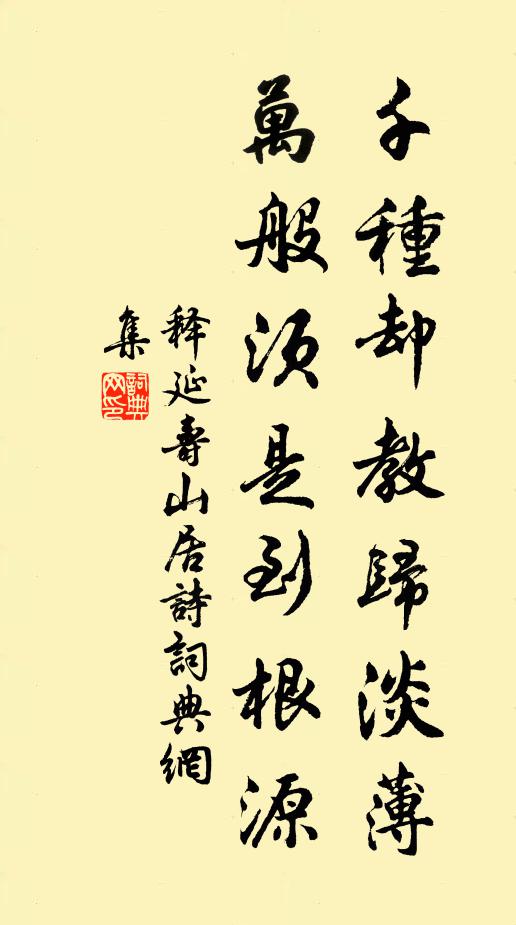 千種却教歸淡薄
萬般須是到根源
釋延壽山居詩詞典網
集
詞典
网印